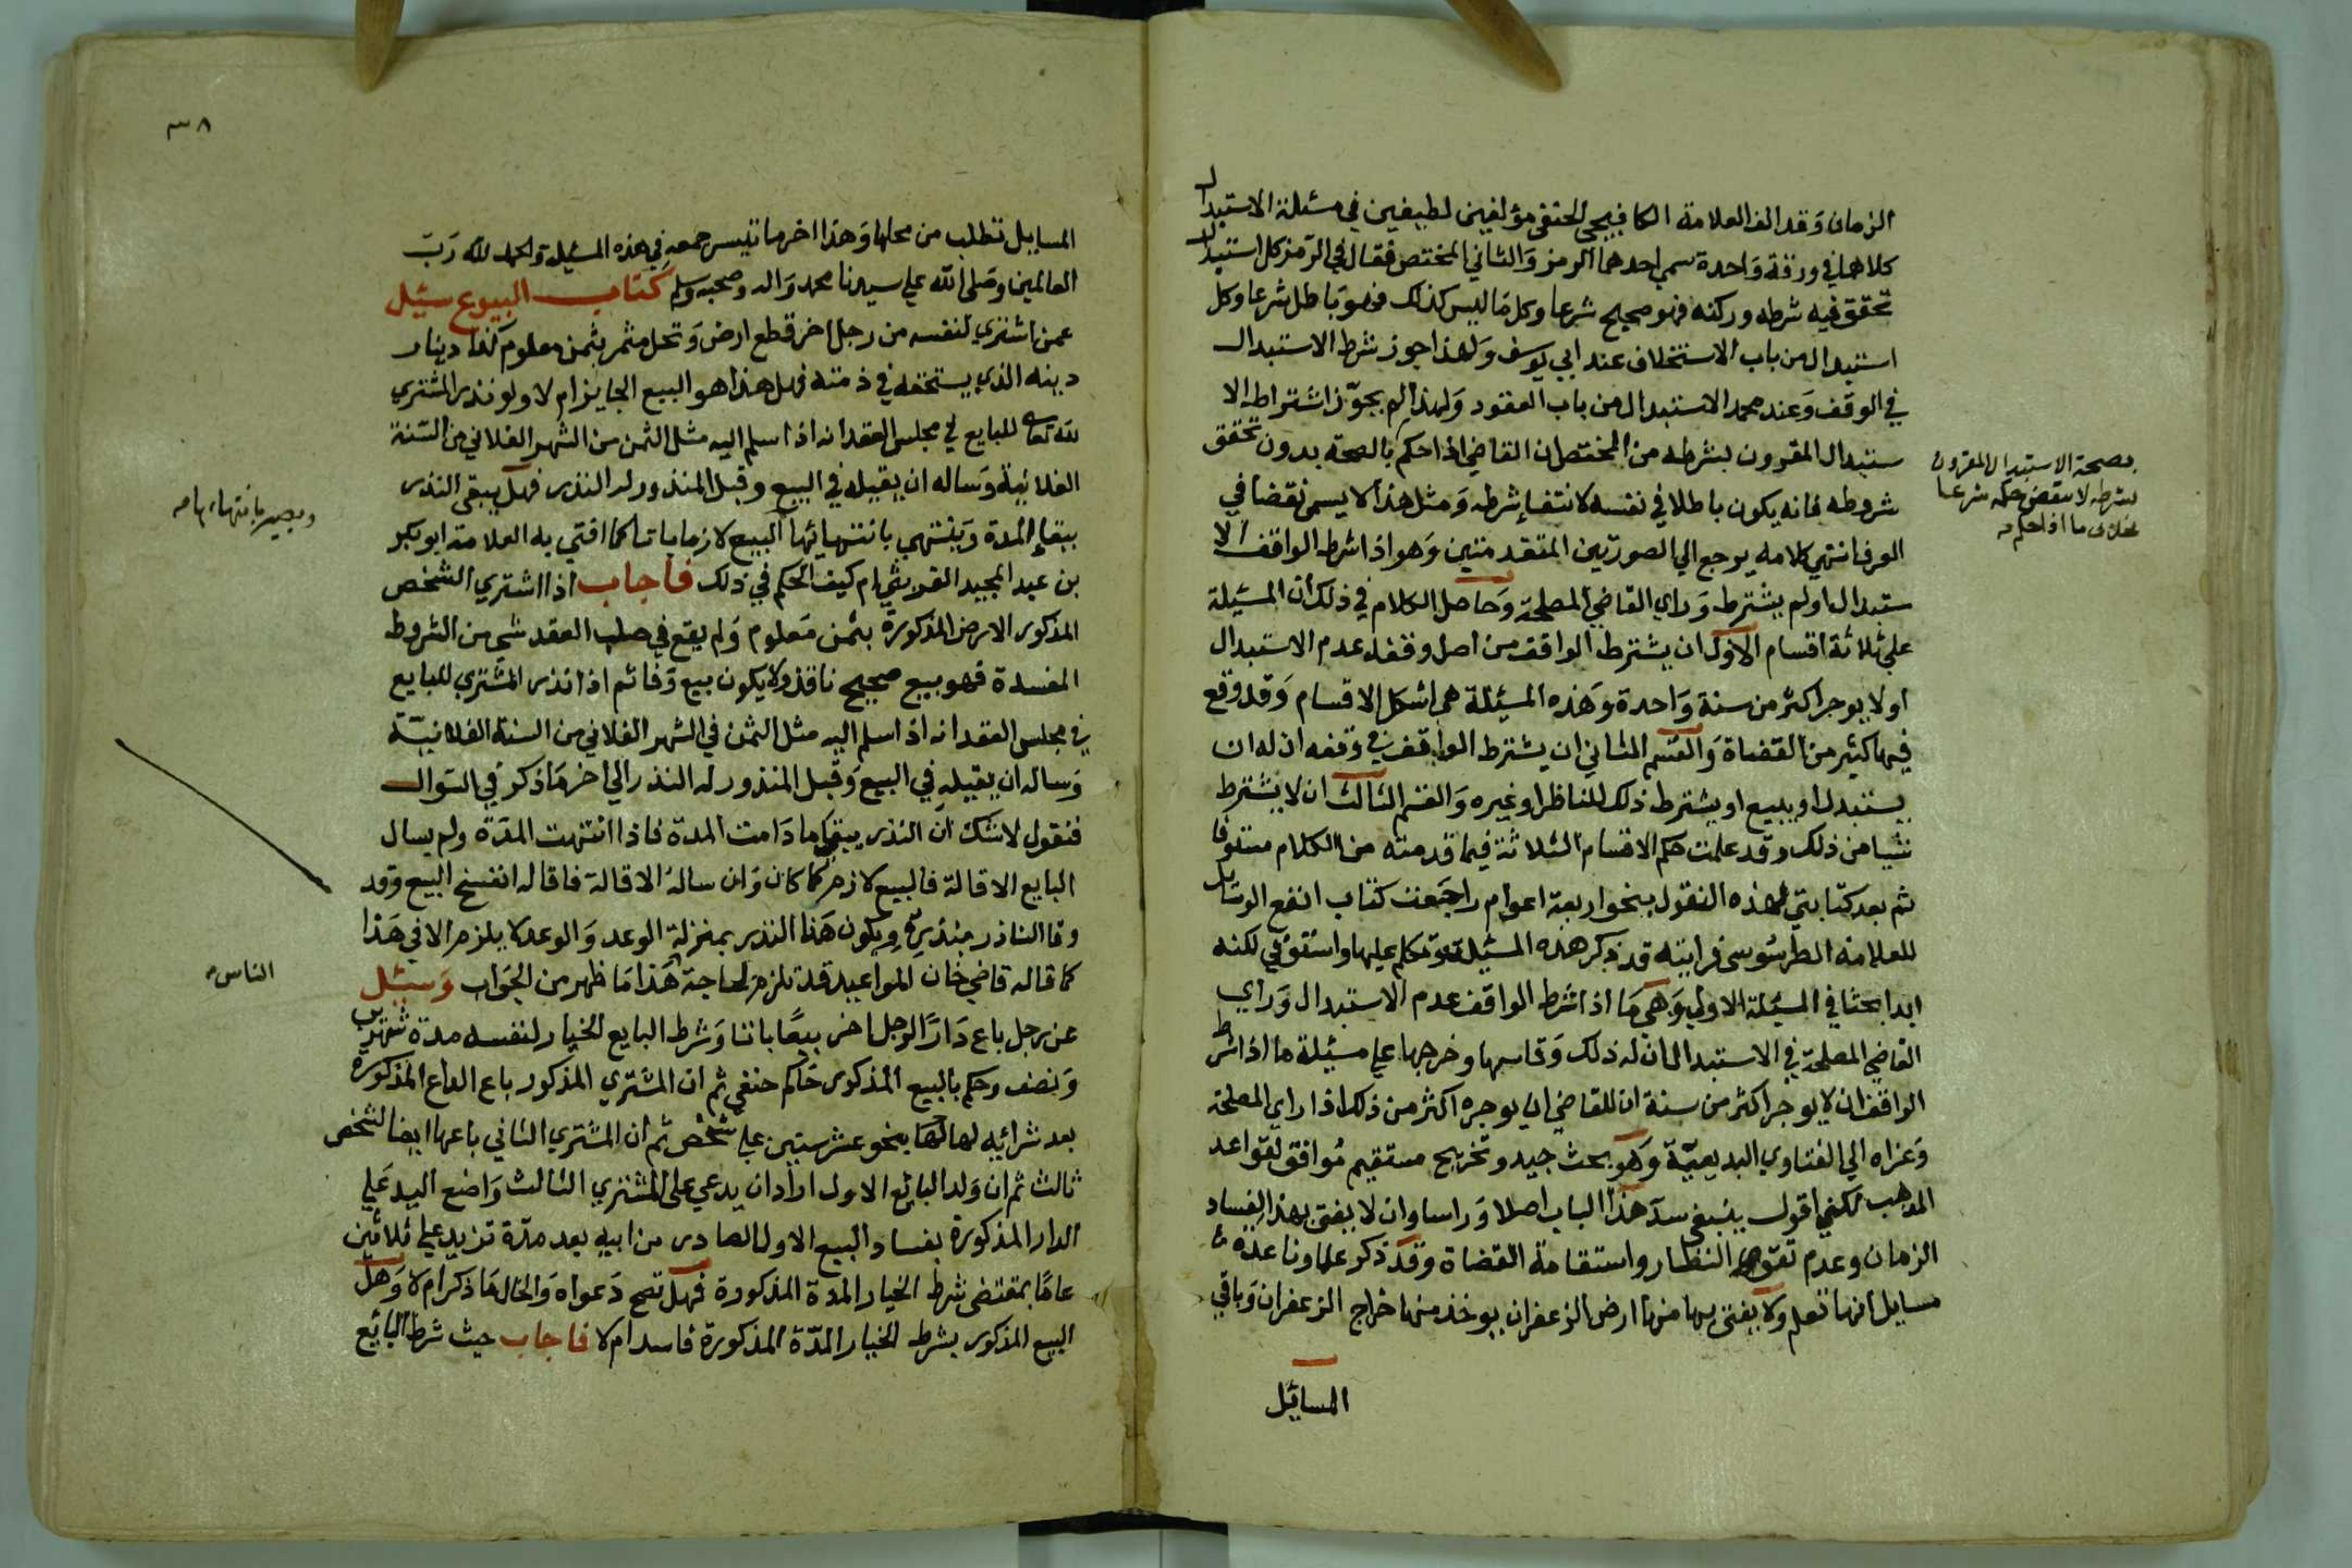 الزمان وقد الف العلامة الكافيجي الحنفي مؤلفين لطيفين في مسئلة الاستبدال
كلاهما في ورقة واحدة سمي احدهما الرمز والثاني المختص فقال في الرمز كل استبدال
تحقق فيه شرطه وركنه فهو صحيح شرعا وكل ما ليس كذلك فهو باطل شرعا وكل
استبدال من باب الاستخلاف عند ابي يوسف ولهذا جوز شرط الاستبدال
في الوقف وعند محمد الاستبدال من باب العقود ولهذا لم يجوّز اشتراطه الا
ستبدال المقرون بشرطه من المختص ان القاضي اذا حكم بالصحة بدون تحقق
بصحة الاستبدال المقرون
بشرطه لا ينقض حكمه شرعا
بخلاف ما اذا حكم
شروطه فانه يكون باطلا في نفسه لانتفاء شرطه ومثل هذا لا يسمى نقضا في
العرف انتهي كلامه يرجع الي الصورتين المتقدمتين وهو اذا شرط الواقف الا
ستبدال او لم يشترط وراي القاضي المصلحة وحاصل الكلام في ذلك أن المسئلة
علي ثلاثة اقسام الاول ان يشترط الواقف من اصل وقفه عدم الاستبدال
او لا يوجر اكثر من سنة واحدة وهذه المسئلة هي اشكل الاقسام وقد وقع
فيها كثير من القضاة والقسم الثاني ان يشترط الواقف في وقفه ان له ان
يستبدل او يبيع او يشترط ذلك للناظر او غيره والقسم الثالث ان لا يشترط
شيا من ذلك وقد علمت حكم الاقسام الثلاثة فيما قدمته من الكلام مستوفا
ثم بعد كتابتي لهذه النقول بنحو اربعة اعوام راجعت كتاب انفع الوسايل
للعلامة الطرسوسي فرايته قد ذكر هذه المسئلة وتكلم عليها واستوفي لكنه
ابدا بحثا في المسئلة الاولي وهي ما اذا شرط الواقف عدم الاستبدال وراي
القاضي المصلحة في الاستبدال ان له ذلك وقاسها وخرجها علي مسئلة ما اذا شرط
الواقف ان لا يوجر اكثر من سنة ان للقاضي ان يوجره اكثر من ذلك اذا راي المصلحة
وعزاه الي الفتاوي البديعيّة وهو بحث جيد وتخريج مستقيم موافق لقواعد
المذهب لكني اقول ينبغي سد هذا الباب اصلا وراسا وان لا يفتي بهذا لفساد
الزمان وعدم تقوي النظار واستقامة القضاة وقد ذكر علماونا عدة
مسايل انها تعلم ولا يفتي بها منها ارض الزعفران يوخذ منها خراج الزعفران وباقي
المسايل
٣٨
المسايل تطلب من محلها وهذا اخر ما تيسر جمعه في هذه المسئلة والحمد لله ربّ
العالمين وصلى الله علي سيدنا محمد واله وصحبه وسلم كتاب البيوع سئل
عمن اشتري لنفسه من رجل اخر قطع ارض ونخل مثمر بثمن معلوم كذا دينار
دينه الذي يستحقه في ذمته فهل هذا هو البيع الجايز ام لا ولو نذر المشتري
لله تعالى للبايع في مجلس العقد انه اذا سلم اليه مثل الثمن من الشهر الفلاني من السّنة
الفلانية وساله ان يقيله في البيع وقبل المنذور له النذر فهل يبقى النذر
ببقاء المدة وينتهي بانتهائها البيع لازما باتا كما افتي به العلامة ابو بكر
ويصير بانتهائها
بن عبد المجيد القريشي ام كيف الحكم في ذلك فأجاب اذا اشتري الشخص
المذكور الارض المذكورة بثمن معلوم ولم يقع في صلب العقد شي من الشروط
المفسدة فهو بيع صحيح نافذ ولا يكون بيع وفا ثم اذا نذر المشتري للبايع
في مجلس العقد انه اذا سلم اليه مثل الثمن في الشهر الفلاني من السنة الفلانية
وساله ان يقيله في البيع وقبل المنذور له النذر الي اخر ما ذكر في السّوال
فنقول لا شك ان النذر يبقي ما دامت المدة فاذا انتهت المدّة ولم يسال
البايع الاقالة فالبيع لازم كما كان وان ساله الاقالة فاقاله انفسخ البيع وقد
وفا الناذر بنذره ويكون هذا النذر بمنزلة الوعد والوعد لا يلزم الا في هذا
كما قاله قاضي خان المواعيد قد تلزم لحاجة هذا ما ظهر من الجواب وسئل
الناس
عن رجل باع دارًا لرجل اخر بيعًا باتا وشرط البايع الخيار لنفسه مدة شهرين
ونصف وحكم بالبيع المذكور حاكم حنفي ثم ان المشتري المذكور باع الدار المذكورة
بعد شرائه لها بنحو عشر سنين علي شخص ثم ان المشتري الثاني باعها ايضا لشخص
ثالث ثم ان ولد البائع الاول اراد ان يدعي على المشتري الثالث واضع اليد علي
الدار المذكورة بفساد البيع الاول الصادر من ابيه بعد مدّة تزيد علي ثلاثين
عامًا بمقتضى شرط الخيار المدة المذكورة فهل تصح دعواه والحال ما ذكر ام لا وهل
البيع المذكور بشرط الخيار المدّة المذكورة فاسد ام لا فاجاب حيث شرط البائع